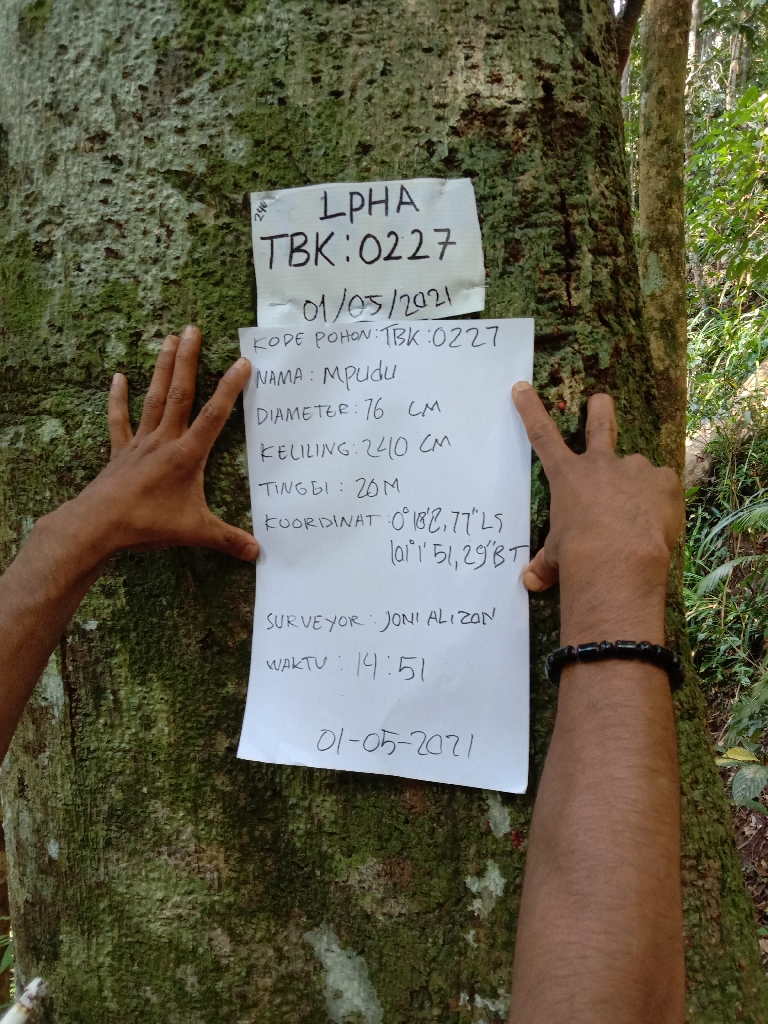 240
LPHA
TBK:0227
01/05/2021
KODE POHON:TBK:0227
NAMA : MPUDU
DIAMETER: 76 CM
KELILING: 240 CM
TINGGI : 20M
KOORDINAT :0°18'2,77"LS
101°1'51,29"BT
SURVEYOR : JONI ALIZON
WAKTU : 14:51
01-05-2021